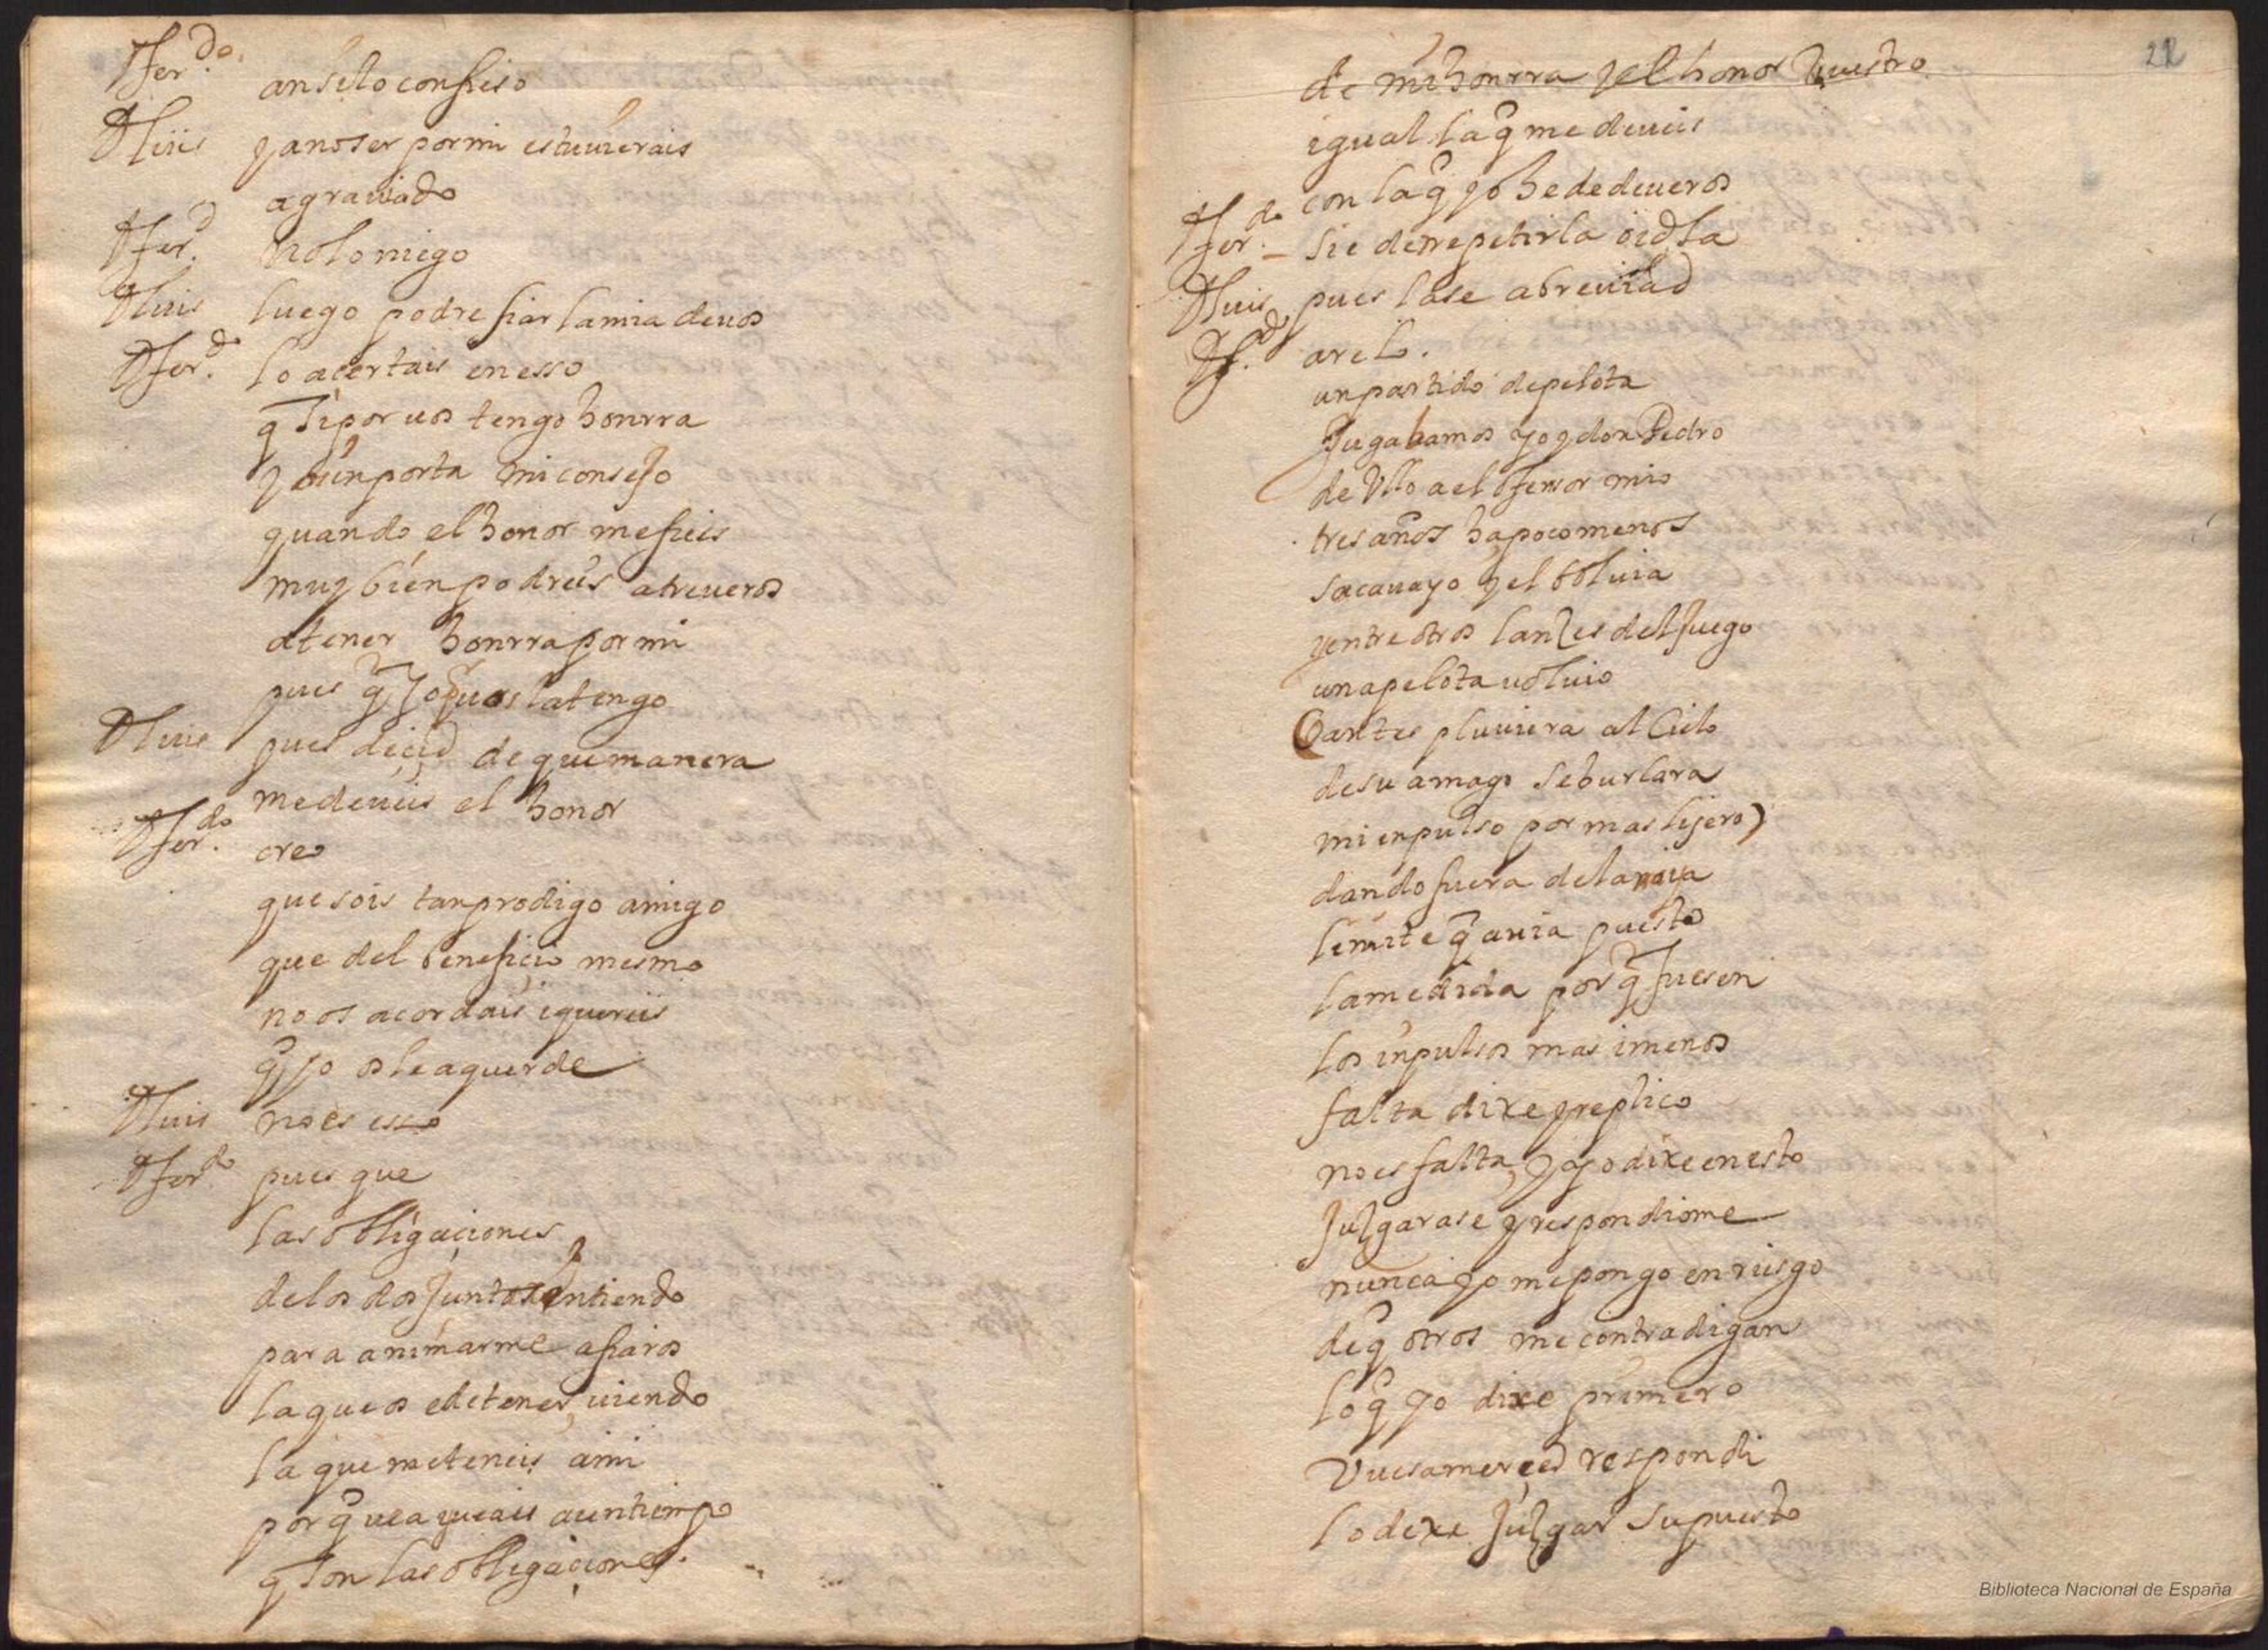 Dferdo. ansi lo confieso
Dluis y a no ser por mi estuuierais
agrauiado
Dferd. no lo niego
Dluis luego podre fiar la mia de uos
Dferdo. lo açertais en esso
q̃ si por uos tengo honrra
y os inporta mi consejo
quando el honor me fieis
muy bien podreis atreueros
a tener honrra por mi
pues q̃ yo por uos la tengo
Dluis pues deçid de que manera
me deueis el honor
Dferdo. creo
que sois tan prodigo amigo
que del benefiçio mesmo
no os acordais i quereis
q̃ yo os le aquerde
Dluis no es esso
Dferdo pues que
las obligaçiones
de los dos juntar entiendo
para animarme a fiaros
la que os e de tener, uiendo
la que me teneis a mi
porq̃ ueays a un tienpo
q̃ son las obligaçiones.
22
de mi honrra y el honor vuestro
igual la q̃ me deueis
con la q̃ yo he de deueros
Dferdo. si e de rrepetirla oidla
Dluis pues la se abreuiad
Dfdo. arelo.
un partido de pelota
Jugabamos yo y don Pedro
de Vlloa el ofensor mio
tres años ha poco menos
sacaua yo y el boluia
y entre otros lanzes del juego
una pelota uoluio
(antes pluuiera al Cielo
de su amago se burlara
mi enpulso por mas lijero)
dando fuera de la raya
limite q̃ auia puesto
la medida porq̃ fuesen
los inpulsos mas i menos
falta dixe y replico
no es falta, y yo dixe en esto
Julgarase y respondiome
nunca yo me pongo en riesgo
de q̃ otros me contradigan
lo q̃ yo dixe primero
Vuesamerçed respondi
lo dexe Julgar supuesto
Biblioteca Nacional de España